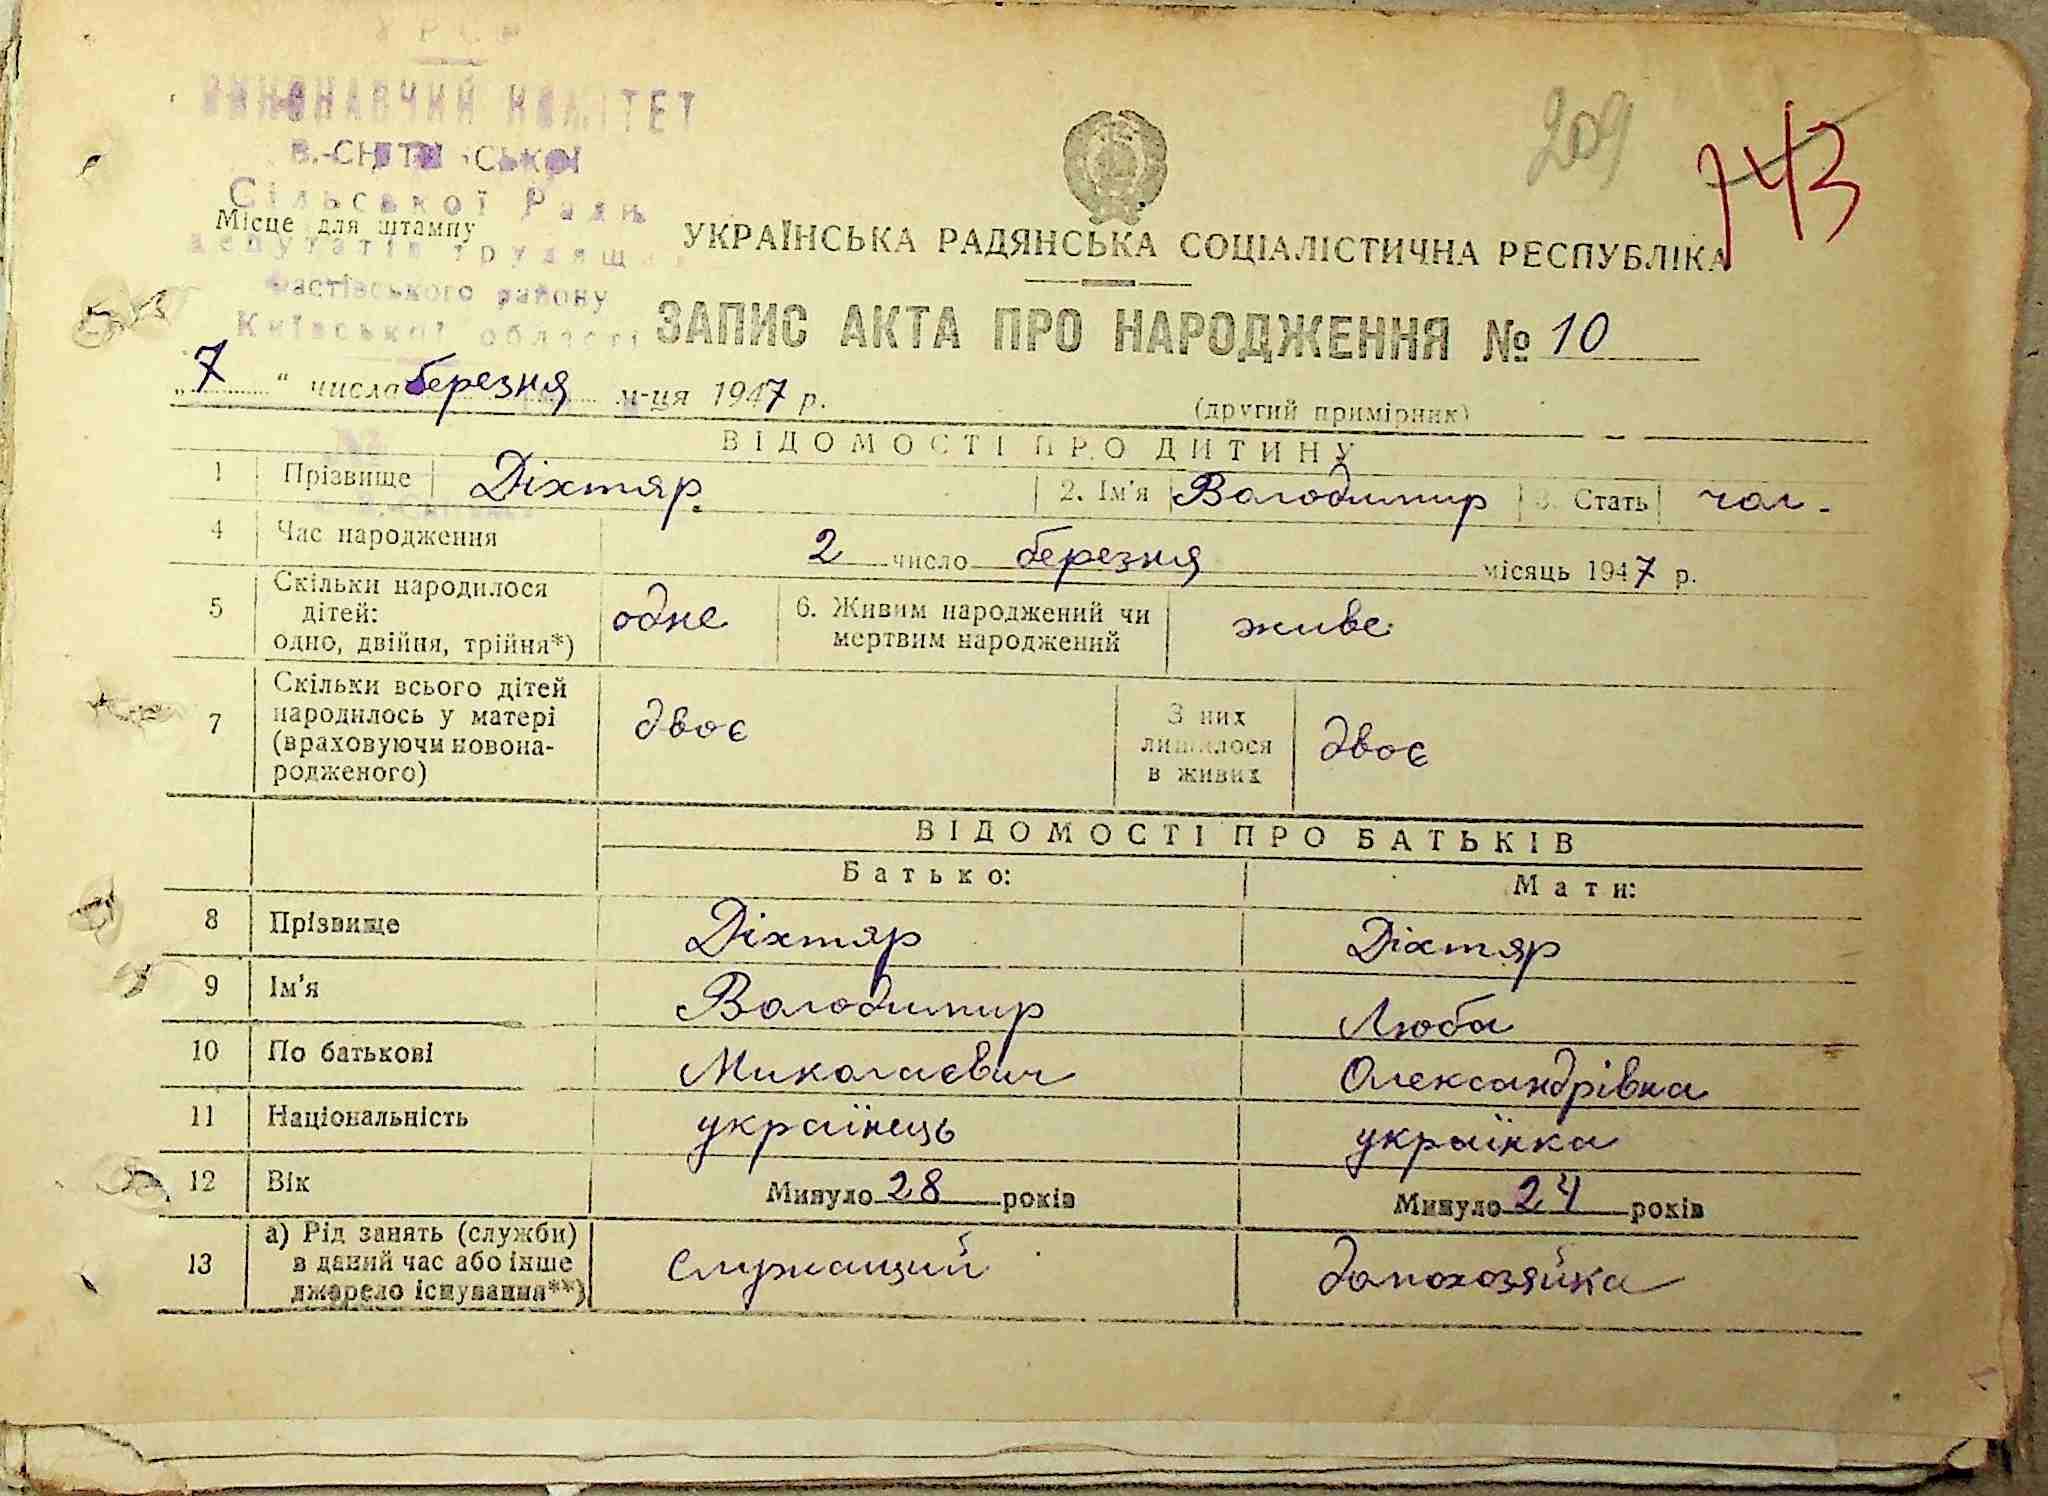 УРСР
ВИКОНАВЧИЙ КОМІТЕТ
Сільської Ради
депутатів трудящ
Фастівського району
Київської області
Місце для штампу
209
743
УКРАЇНСЬКА РАДЯНСЬКА СОЦІАЛІСТИЧНА РЕСПУБЛІКА
ЗАПИС АКТА ПРО НАРОДЖЕННЯ № 10
„ 7 “ числа березня м-ця 1947 р.
(другий примірник)
ВІДОМОСТІ ПРО ДИТИНУ
1 Прізвище Діхтяр. 2. Ім'я Володимир 3. Стать чол.
4 Час народження 2 число березня місяць 1947 р.
5 Скільки народилося
дітей:
одно, двійня, трійня*) одне 6. Живим народжений чи
мертвим народжений живе
7 Скільки всього дітей
народилось у матері
(враховуючи новона-
родженого) двоє З них
лишилося
в живих двоє
ВІДОМОСТІ ПРО БАТЬКІВ
Батько: Мати:
8 Прізвище Діхтяр Діхтяр
9 Ім'я Володимир Люба
10 По батькові Миколаєвич Олександрівна
11 Національність українець українка
12 Вік Минуло 28 років Минуло 24 років
13 а) Рід занять (служби)
в даний час або інше
джерело існування**) служащий домохозяйка